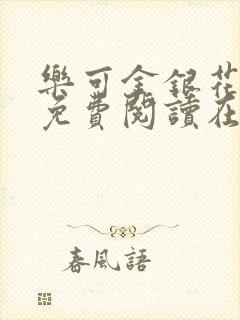 樂可金銀花
免費閱讀在
春風語